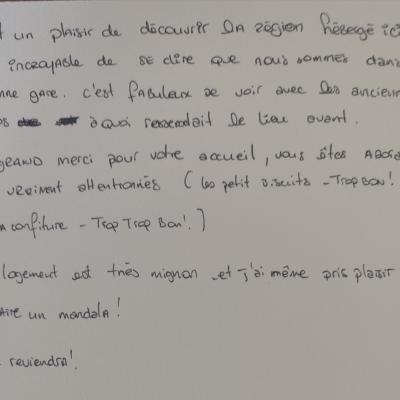 t un plaisir de découvrir la région hébergé ici
incroyable de se dire que nous sommes dans
nne gare. c'est fabuleux de voir avec les ancienn
os à quoi ressemblait le lieu avant.
grand merci pour votre accueil, vous êtes ador
vraiment attentionnés (les petit biscuits - Trop Bon!
confiture - Trop Trop Bon!)
logement est très mignon et j'ai même pris plaisir
aire un mandala!
reviendra!